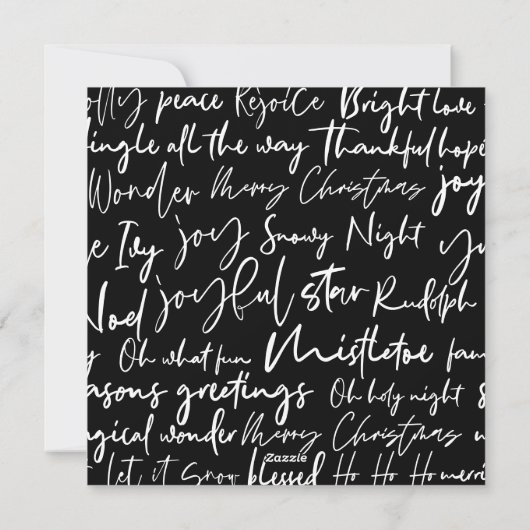 olly peace Rejoice Bright love
Jingle all the way Thankful hope
Wonder Merry Christmas joy
Ivy joy Snowy Night
Noel joyful star Rudolph
Oh what fun Mistletoe fam
easons greetings Oh holy night
gical wonder Merry Christmas
let it Snow blessed Ho Ho Ho merri
Zazzle